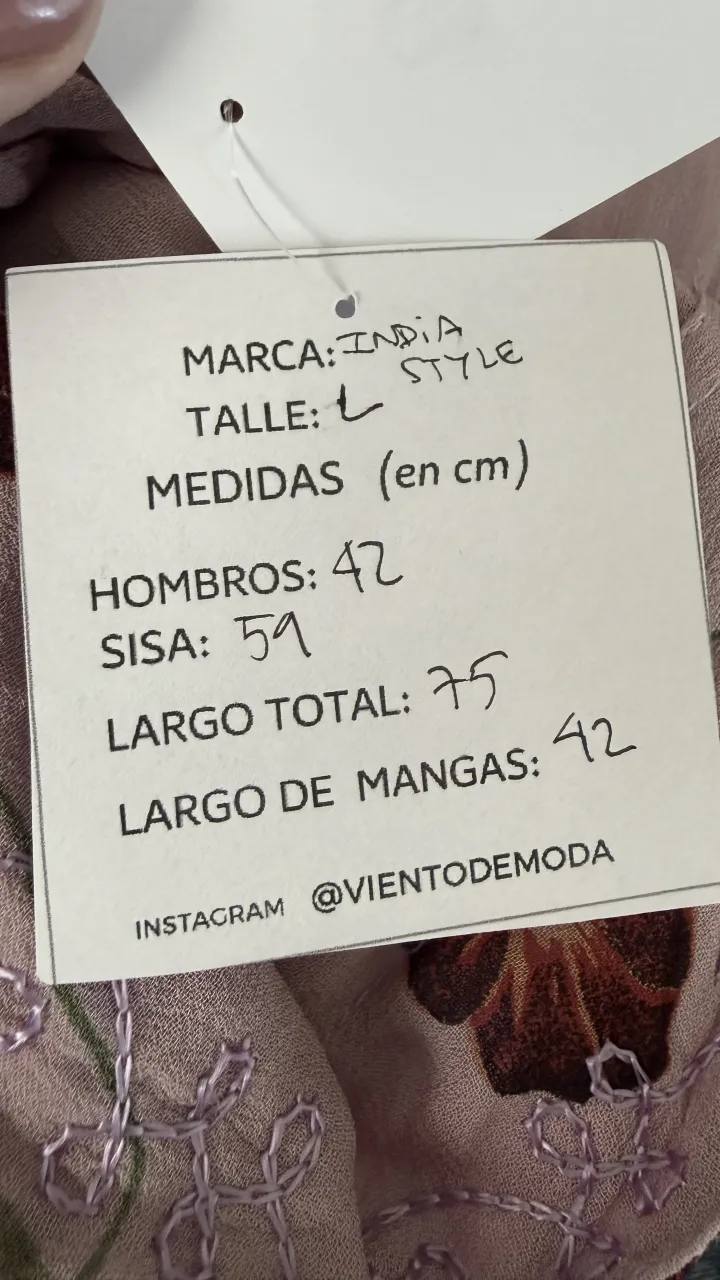 MARCA: INDiA
STYLE
TALLE: L
MEDIDAS (en cm)
HOMBROS: 42
SISA: 59
LARGO TOTAL: 75
LARGO DE MANGAS: 42
INSTAGRAM @VIENTODEMODA